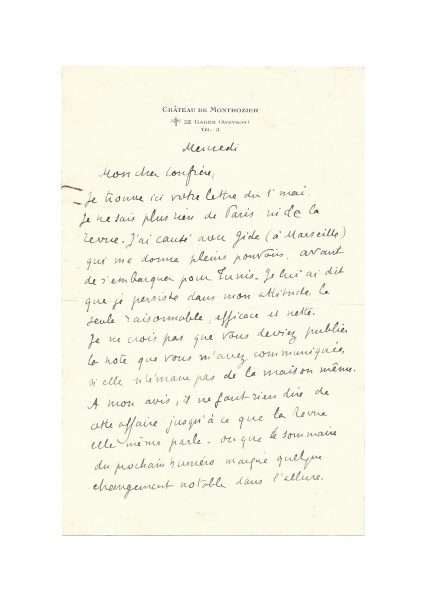 CHÂTEAU DE MONTROZIER
GAGES (AVEYRON)
TÉL. 3
Mercredi
Mon cher Confrère,
Je trouve ici votre lettre du 1er mai.
Je ne sais plus rien de Paris ni de la
revue. J'ai causé avec Gide (à Marseille)
qui me donne pleins pouvoirs, avant
de s'embarquer pour Tunis. Je lui ai dit
que je persiste dans mon attitude la
seule raisonnable, efficace et nette.
Je ne crois pas que vous deviez publier
la note que vous m'avez communiquée,
si elle n'émane pas de la maison même.
A mon avis, il ne faut rien dire de
cette affaire jusqu'à ce que la Revue
elle même parle. ou que le sommaire
du prochain numéro marque quelque
changement notable dans l'allure.